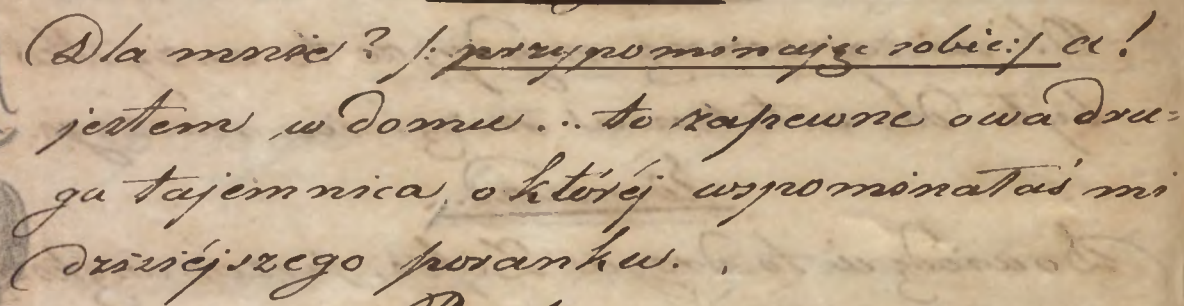 Dla mnie? /: przypominając sobie:/ a!
jestem w domu... to zapewne owa dru=
ga tajemnica, o któréj wspominałaś mi
dzisiéjszego poranku.